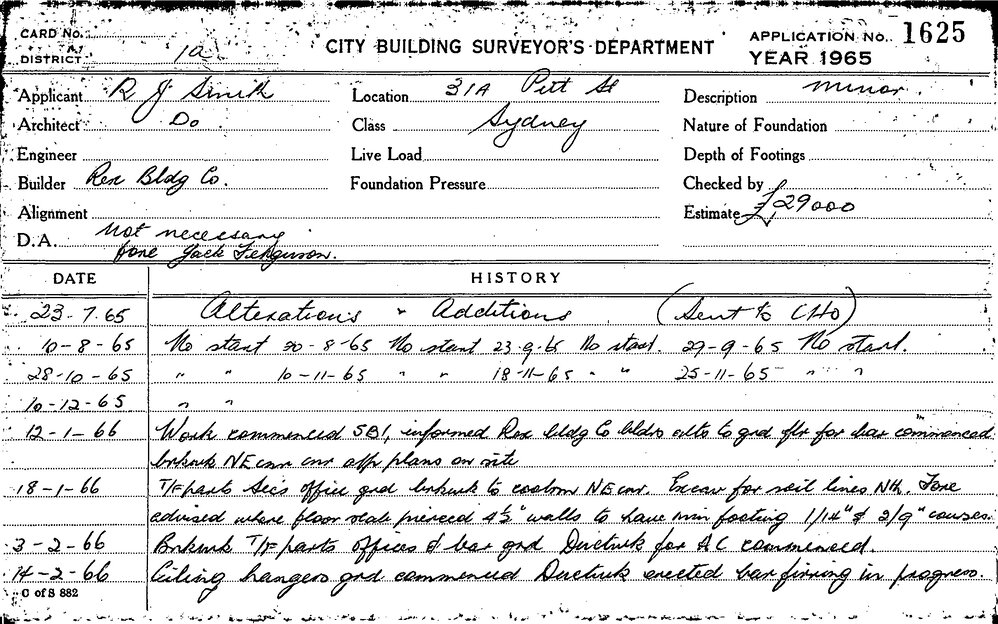 CARD No.
DISTRICT 1a
CITY BUILDING SURVEYOR'S DEPARTMENT
APPLICATION No. 1625
YEAR 1965
Applicant R J Smith
Location 31A Pitt St
Description minor.
Architect Do
Class Sydney
Nature of Foundation
Engineer
Live Load
Depth of Footings
Builder Rex Bldg Co.
Foundation Pressure
Checked by
Alignment
Estimate £29000
D.A. Not necessary
fore Jack Ferguson.
DATE HISTORY
23-7.65 Alterations & Additions (Sent to CHO)
10-8-65 No start 20-8-65 No start 23-9-65 No start. 29-9-65 No start.
28-10-65 " " 10-11-65 " " 18-11-65 " " 25-11-65 " "
10-12-65 " "
12-1-66 Work commenced SBI, informed Rex bldg Co bldrs alts to grd flr for bar commenced
brkwk NE cnr plans on site
18-1-66 T/F parts office grd brkwk to NE cnr. Excav for soil lines Nth. Fore
advised where floor slab pierced 4½" walls to have min footing 1/14" & 2/9" courses
3-2-66 Brkwk T/F parts offices & bar grd Ductwk for A C commenced.
14-2-66 Ceiling hangers grd commenced Ductwk erected bar firring in progress.
C of S 882